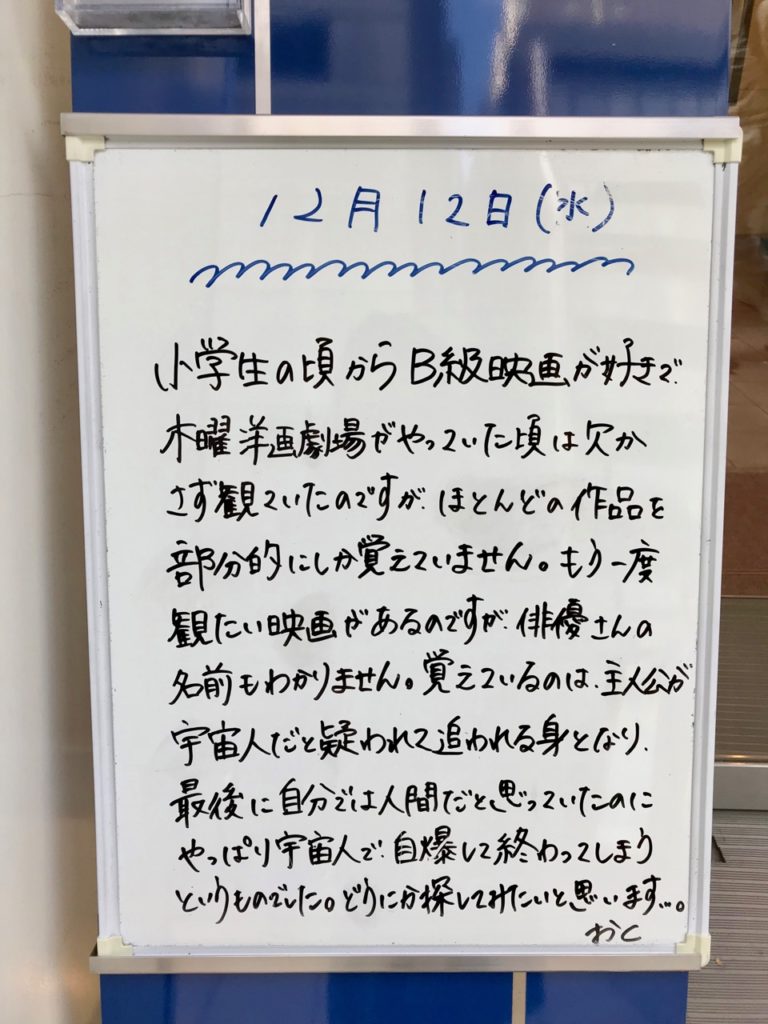 12月12日(水)
小学生の頃からB級映画が好きで
木曜洋画劇場がやっていた頃は欠か
さず観ていたのですが、ほとんどの作品を
部分的にしか覚えていません。もう一度
観たい映画があるのですが、俳優さんの
名前もわかりません。覚えているのは、主人公が
宇宙人だと疑われて追われる身となり、
最後に自分では人間だと思っていたのに
やっぱり宇宙人で、自爆して終わってしまう
というものでした。どうにか探してみたいと思います…。
おく